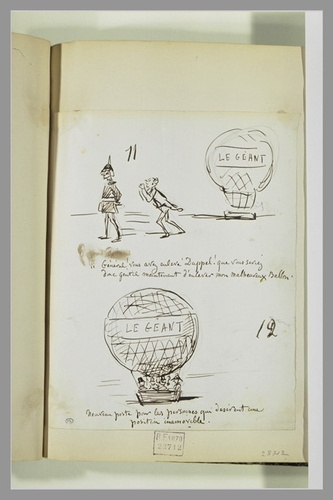 11
LE GEANT
Général vous avez enlevé Duppel! que vous seriez
donc gentil maintenant d'enlever mon malheureux Ballon.
LE GEANT
12
Nouveau poste pour les personnes qui désirent une
position inamovible.
R.F. 4079